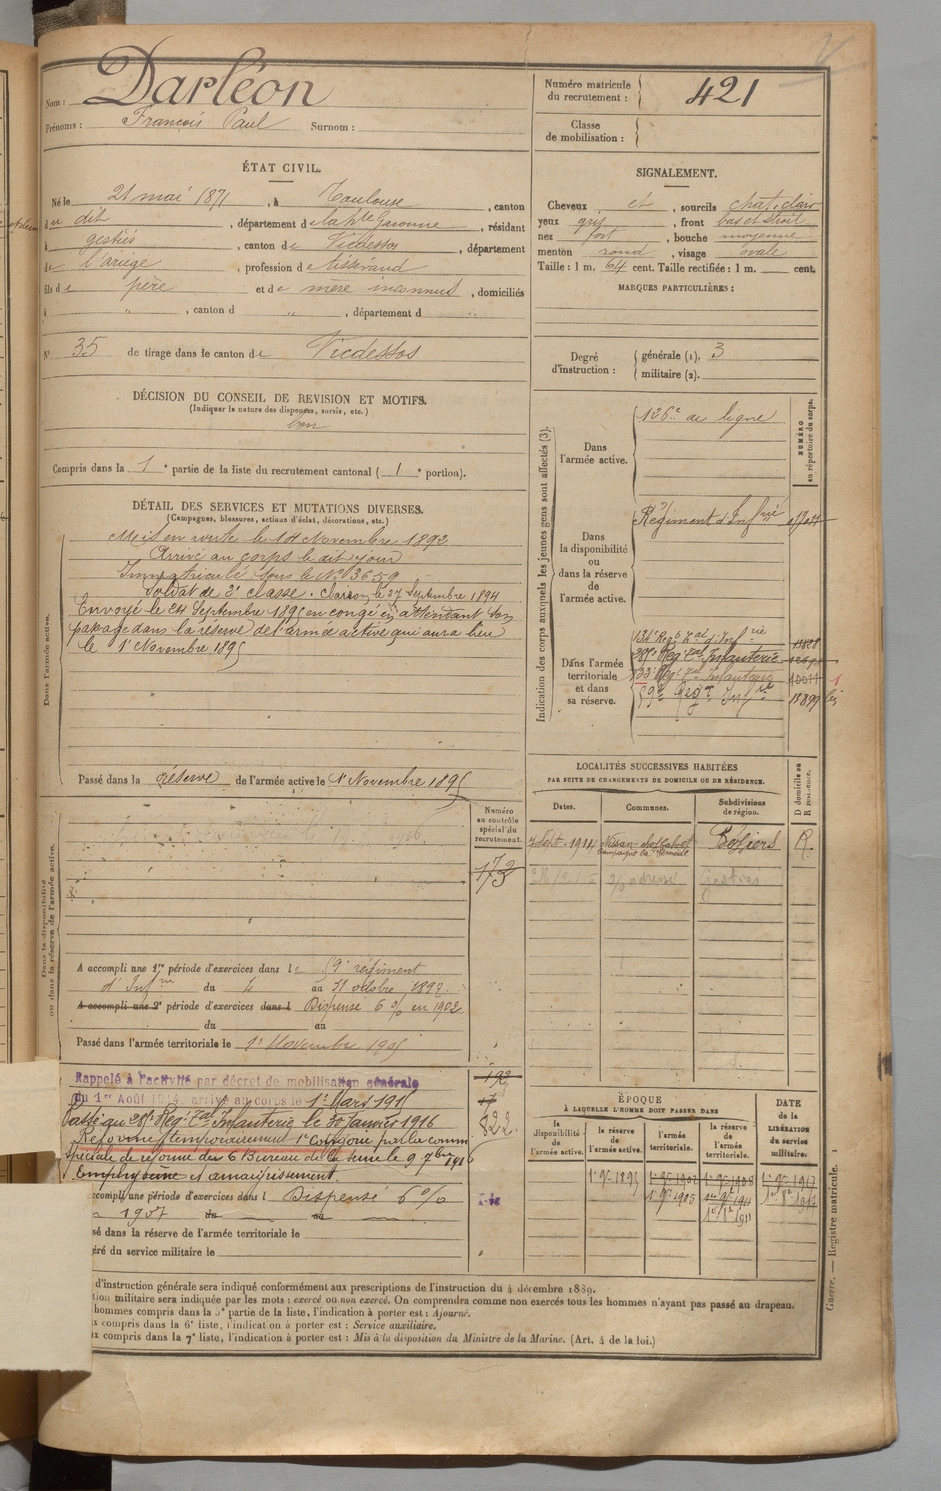 Nom : Darléon
Prénoms : François Paul Surnom :
Numéro matricule du recrutement : 421
Classe de mobilisation :
ÉTAT CIVIL.
Né le 21 mai 1871, à Toulouse, canton
du dit, département de la Hte Garonne, résidant
à gestiès, canton de Vicdessos, département
de l'ariège, profession de tisserand
fils de père et de mère inconnus, domiciliés
à " , canton d " , département d
N° 35 de tirage dans le canton de Vicdessos
SIGNALEMENT.
Cheveux et, sourcils chat. clair
yeux gris, front bas et étroit
nez fort, bouche moyenne
menton rond, visage ovale
Taille : 1 m. 64 cent. Taille rectifiée : 1 m. cent.
MARQUES PARTICULIÈRES :
Degré d'instruction : générale (1). 3
militaire (2).
DÉCISION DU CONSEIL DE REVISION ET MOTIFS.
(Indiquer la nature des dispenses, sursis, etc.)
bon
Compris dans la 1e partie de la liste du recrutement cantonal (1e portion).
DÉTAIL DES SERVICES ET MUTATIONS DIVERSES.
(Campagnes, blessures, actions d'éclat, décorations, etc.)
Dans l'armée active.
Mis en route le Novembre 1892
Arrivé au corps le dit jour
Immatriculé sous le N° 3659
Soldat de 2e classe. Clairon le 27 Septembre 1894
Envoyé le 24 Septembre 1895 en congé en attendant son
passage dans la réserve de l'armée active qui aura lieu
le 1er Novembre 1895
Passé dans la réserve de l'armée active le 1er Novembre 1895
Indication des corps auxquels les jeunes gens sont affectés (3).
NUMÉRO au répertoire du corps.
Dans l'armée active. 126e de ligne
Dans la disponibilité ou dans la réserve de l'armée active.
Régiment d'Infrie
Dans l'armée territoriale et dans sa réserve.
134e Regt Tal d'Infrie
Regt Tal Infanterie
133e Regt Tal Infanterie
Regt Infie
LOCALITÉS SUCCESSIVES HABITÉES
PAR SUITE DE CHANGEMENTS DE DOMICILE OU DE RÉSIDENCE.
Dates. Communes. Subdivisions de région. D domicile ou R résidence.
7 Sept. 1914 Béziers R.
Gestiès
Dans la disponibilité ou dans la réserve de l'armée active.
Numéro au contrôle spécial du recrutement.
173
A accompli une 1re période d'exercices dans le 59e régiment
d'Infrie du 4 au 31 octobre 1892
A accompli une 2e période d'exercices dans l Dispensé 6 % en 1902
du au
Passé dans l'armée territoriale le 1er Novembre 1905
Rappelé à l'activité par décret de mobilisation générale
du 1er Août 1914, arrivé au corps le 1er Mars 1915
Passé au Regt Tal Infanterie le 30 Janvier 1916
Réformé temporairement par la comm
spéciale de réforme du 6 Bureau de la Seine le 9 7bre 1916
Emphysème et amaigrissement.
192
822
ccompli une période d'exercices dans l Dispensé 6 %
1907 du au
sé dans la réserve de l'armée territoriale le
éré du service militaire le
ÉPOQUE
À LAQUELLE L'HOMME DOIT PASSER DANS
la disponibilité de l'armée active. la réserve de l'armée active. l'armée territoriale. la réserve de l'armée territoriale. DATE de la LIBÉRATION du service militaire.
1er 9bre 1895 1er 9bre 1902 1er 9bre 1908 1er 9bre 1917
1er 9bre 1905 1er 9bre 1911
d'instruction générale sera indiqué conformément aux prescriptions de l'instruction du 4 décembre 1889.
tion militaire sera indiquée par les mots : exercé ou non exercé. On comprendra comme non exercés tous les hommes n'ayant pas passé au drapeau.
hommes compris dans la 5e partie de la liste, l'indication à porter est : Ajourné.
x compris dans la 6e liste, l'indication à porter est : Service auxiliaire.
x compris dans la 7e liste, l'indication à porter est : Mis à la disposition du Ministre de la Marine. (Art. 4 de la loi.)
Guerre. — Registre matricule. 1